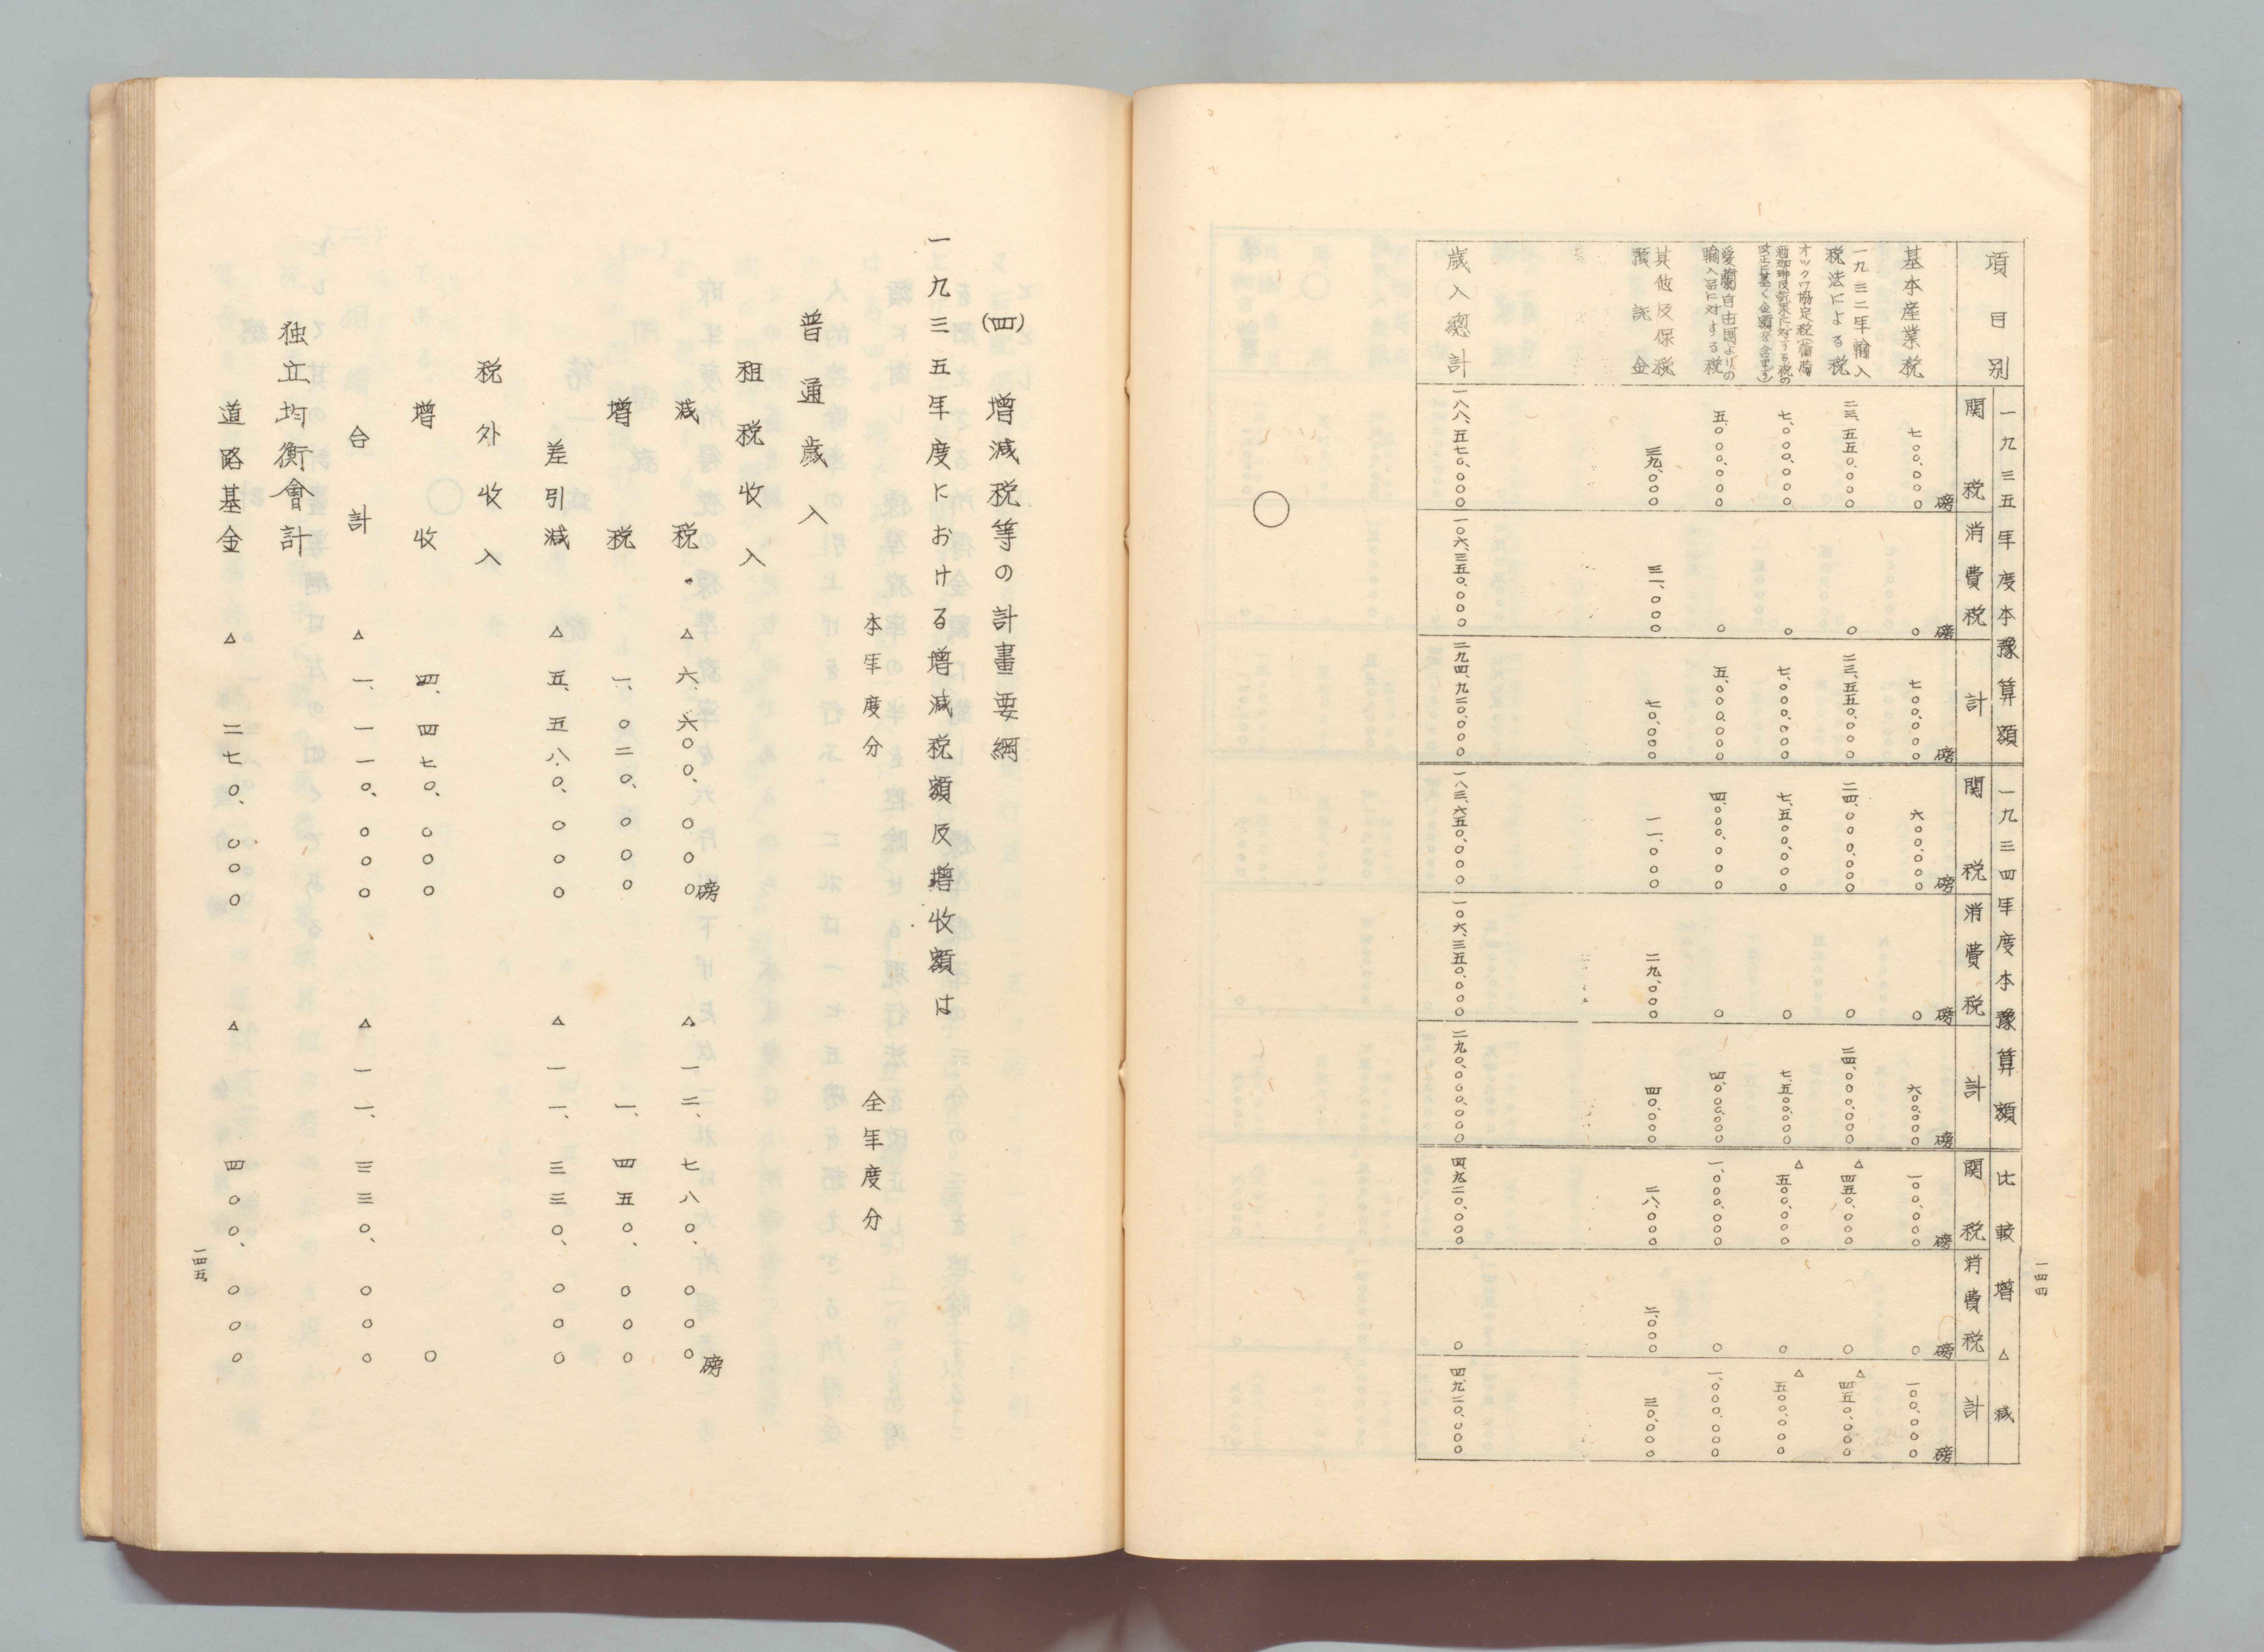 一四四
項目別 一九三五年度本豫算額 一九三四年度本豫算額 比較増△減
関税 消費税 計 関税 消費税 計 関税 消費税 計
磅 磅 磅 磅 磅 磅 磅 磅 磅
基本産業税 七〇〇、〇〇〇 〇 七〇〇、〇〇〇 六〇〇、〇〇〇 〇 六〇〇、〇〇〇 一〇〇、〇〇〇 〇 一〇〇、〇〇〇
一九三二年輸入
税法による税 二三、五五〇、〇〇〇 〇 二三、五五〇、〇〇〇 二四、〇〇〇、〇〇〇 〇 二四、〇〇〇、〇〇〇 △四五〇、〇〇〇 〇 △四五〇、〇〇〇
オックワ協定税(葡萄
酒珈琲及乾果に対する税の
改正に基く金額を含まず) 七、〇〇〇、〇〇〇 〇 七、〇〇〇、〇〇〇 七、五〇〇、〇〇〇 〇 七、五〇〇、〇〇〇 △五〇〇、〇〇〇 〇 △五〇〇、〇〇〇
愛蘭自由国よりの
輸入品に対する税 五、〇〇〇、〇〇〇 〇 五、〇〇〇、〇〇〇 四、〇〇〇、〇〇〇 〇 四、〇〇〇、〇〇〇 一、〇〇〇、〇〇〇 〇 一、〇〇〇、〇〇〇
其他及保税
預託金 三九、〇〇〇 三一、〇〇〇 七〇、〇〇〇 一一、〇〇〇 二九、〇〇〇 四〇、〇〇〇 二八、〇〇〇 二、〇〇〇 三〇、〇〇〇
歳入總計 一八八、五七〇、〇〇〇 一〇六、三五〇、〇〇〇 二九四、九二〇、〇〇〇 一八三、六五〇、〇〇〇 一〇六、三五〇、〇〇〇 二九〇、〇〇〇、〇〇〇 四、九二〇、〇〇〇 〇 四、九二〇、〇〇〇
〇
(四)増減税等の計畫要綱
一九三五年度における増減税額及増收額は
本年度分 全年度分
普通歳入
租税收入
磅 磅
減税 △六、六〇〇、〇〇〇 △一二、七八〇、〇〇〇
増税 一、〇二〇、〇〇〇 一、四五〇、〇〇〇
差引減 △五、五八〇、〇〇〇 △一一、三三〇、〇〇〇
税外收入
増收 四、四七〇、〇〇〇 〇
合計 △一、一一〇、〇〇〇 △一一、三三〇、〇〇〇
独立均衡會計
道路基金 △二七〇、〇〇〇 △四〇〇、〇〇〇
一四五